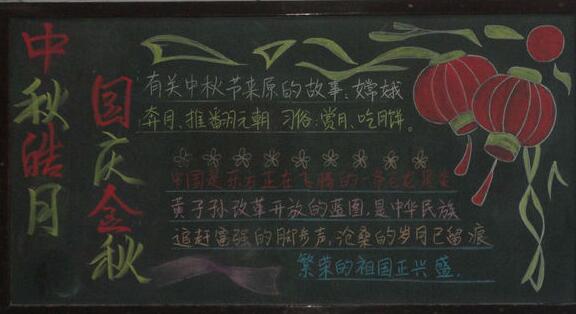 中秋皓月
国庆金秋
有关中秋节来原的故事:嫦娥
奔月、推翻元朝 习俗:赏月、吃月饼。
中国是东方正在飞腾的一条巨龙炎
黄子孙改革开放的蓝图,是中华民族
追赶富强的脚步声,沧桑的岁月已留痕
繁荣的祖国正兴盛.